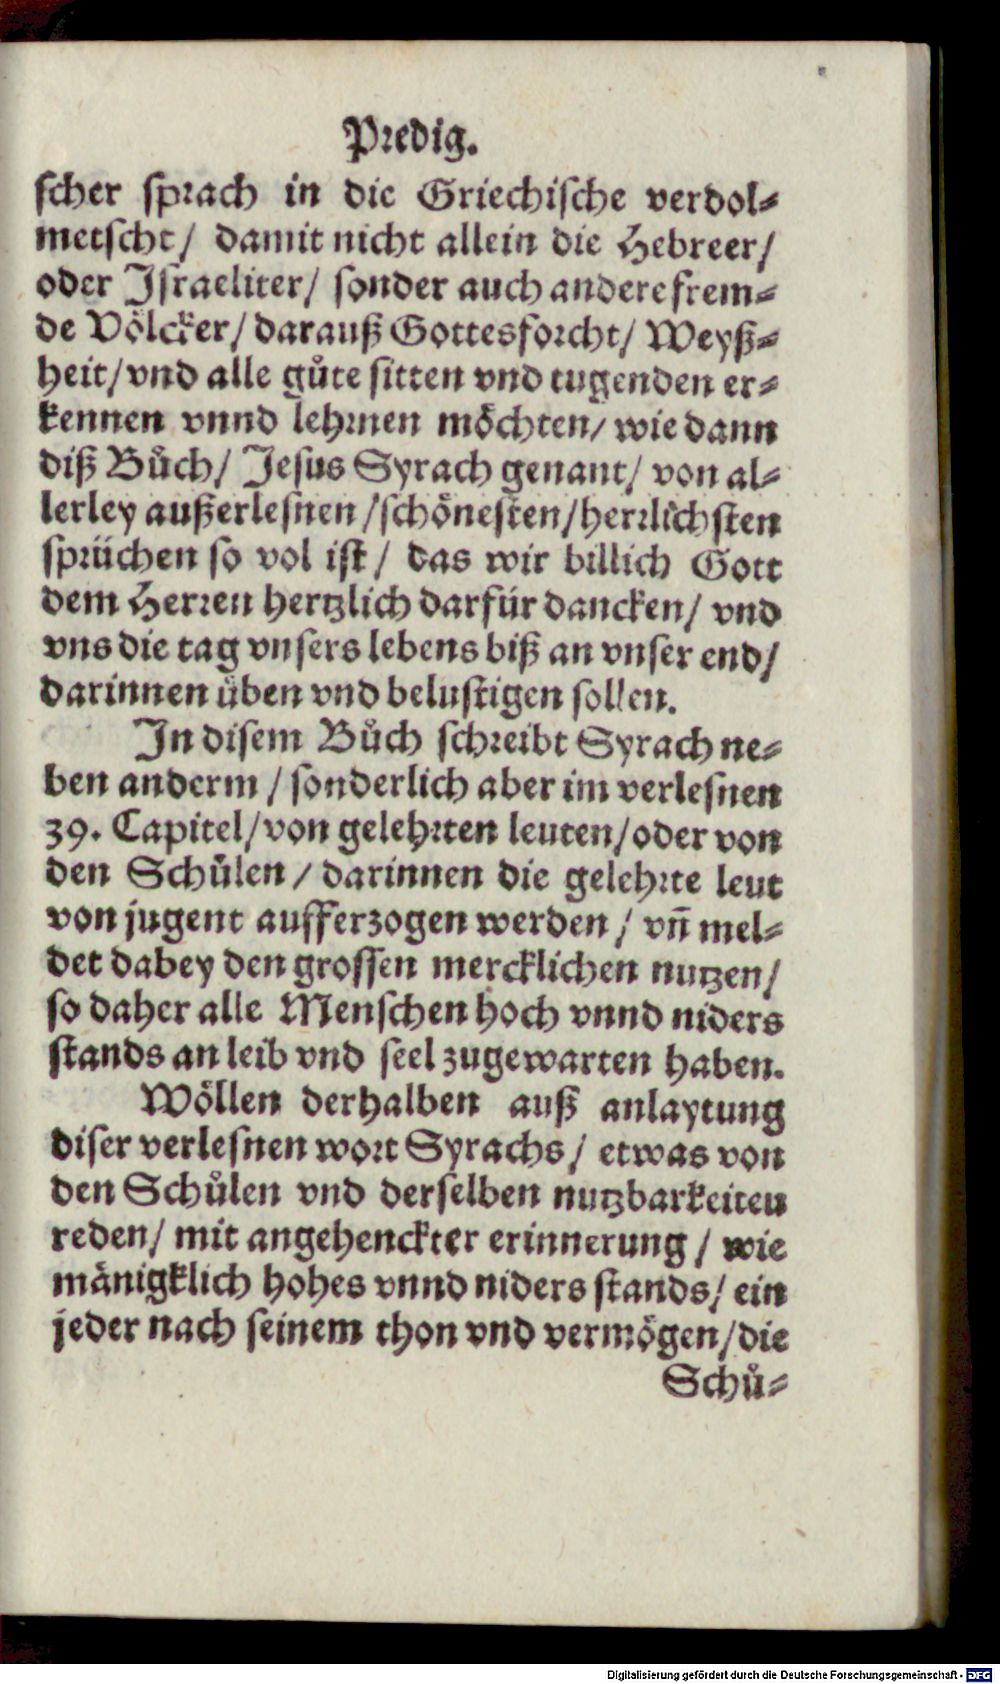 Predig.
scher sprach in die Griechische verdol⸗
metscht/ damit nicht allein die Hebreer/
oder Israeliter/ sonder auch andere frem⸗
de Völcker/ darauß Gottesforcht/ Weyß⸗
heit/ vnd alle gůte sitten vnd tugenden er⸗
kennen vnnd lehrnen möchten/ wie dann
diß Bůch/ Jesus Syrach genant/ von al⸗
lerley außerlesnen/ schönesten/ herrlichsten
sprüchen so vol ist/ das wir billich Gott
dem Herren hertzlich darfür dancken/ vnd
vns die tag vnsers lebens biß an vnser end/
darinnen üben vnd belustigen sollen.
In disem Bůch schreibt Syrach ne⸗
ben anderm/ sonderlich aber im verlesnen
39. Capitel/ von gelehrten leuten/ oder von
den Schůlen/ darinnen die gelehrte leut
von jugent aufferzogen werden/ vn̄ mel⸗
det dabey den grossen mercklichen nutzen/
so daher alle Menschen hoch vnnd niders
stands an leib vnd seel zugewarten haben.
Wöllen derhalben auß anlaytung
diser verlesnen wort Syrachs/ etwas von
den Schůlen vnd derselben nutzbarkeiten
reden/ mit angehenckter erinnerung/ wie
mänigklich hohes vnnd niders stands/ ein
jeder nach seinem thon vnd vermögen/ die
Schů⸗
Digitalisierung gefördert durch die Deutsche Forschungsgemeinschaft - DFG